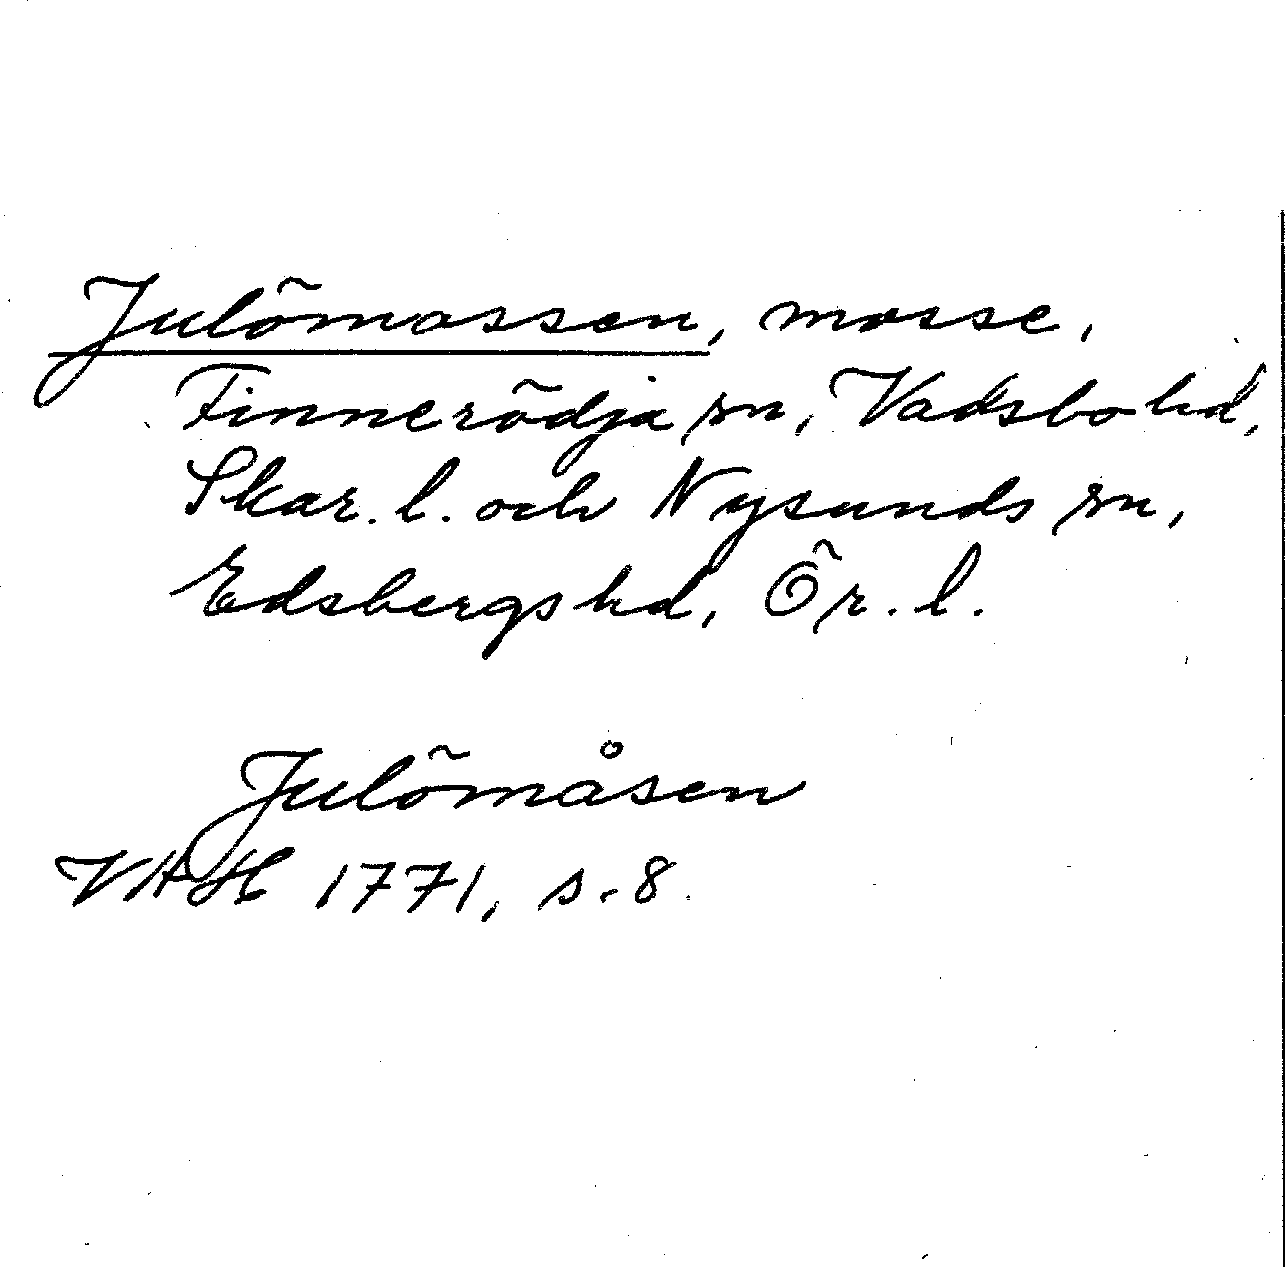 Julömossen, mosse,
Finnerödja sn, Vadsbo hd,
Skar. l. och Nysunds sn,
Edsbergs hd, Ör. l.
Julömåsen
VAH 1771, s. 8.